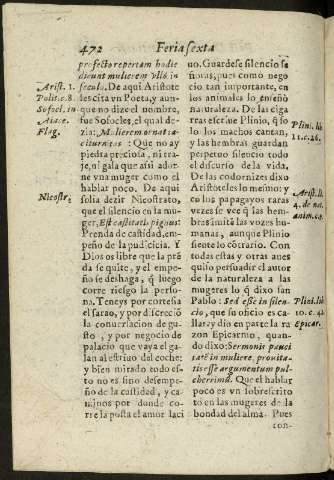 472
Feria sexta
profecto repertam hodie
dicunt mulierem ullo in
seculo. De aqui Aristote
les cita vn Poeta, y aun-
que no dize el nombre,
fue Sofocles, el qual de-
zia: Mulierem ornat ta-
citurnitas: Que no ay
piedra preciosa, ni tra-
je, ni gala que assi ador-
ne vna muger como el
hablar poco. De aqui
solia dezir Nicostrato,
que el silencio en la mu-
ger, Est castitatis pignus:
Prenda de castidad, em-
peño de la pudicicia. Y
Dios os libre que la prē
da se quite, y el empe-
ño se deshaga, q̃ luego
corre riesgo la perso-
na. Teneys por cortesia
el sarao, y por discreciō
la conuersacion de gus-
to, y por negocio de
palacio que vaya el ga-
lan al estriuo del coche:
y bien mirado todo es-
to no es sino desempe-
ño de la castidad, y ca-
minos por donde co-
rre la posta el amor laci
Arist. 1.
Polit. c. 8.
Sofocl. in
Aiace.
Flag.
Nicostr.
uo. Guardese silencio se
ñoras, pues como nego
cio tan importante, en
los animales lo enseñó
naturaleza. De las ciga
rras escriue Plinio, q̃ so
lo los machos cantan,
y las hembras guardan
perpetuo silencio todo
el discurso de la vida.
De las codornizes dixo
Aristoteles lo mesmo: y
en los papagayos raras
vezes se vee q̃ las hem-
bras imitã las vozes hu-
manas, aunque Plinio
siente lo cōtrario. Con
todas estas y otras aues
quiso persuadir el autor
de la naturaleza a las
mugeres lo q̃ dixo san
Pablo: Sed esse in silen-
cio, que su oficio es ca-
llar: y dio en parte la ra
zon Epicarmo, quan-
do dixo: Sermonis pauci
tatē in muliere, prouita-
tis esse argumentum pul-
cherrimũ. Que el hablar
poco es vn sobrescrito
to en las mugeres de la
bondad del alma. Pues
con-
Plini. lib
11. c. 26.
Arist. li.
4. de nat.
anim. c. 9.
Plini. lib
10. c. 42
Epicar.